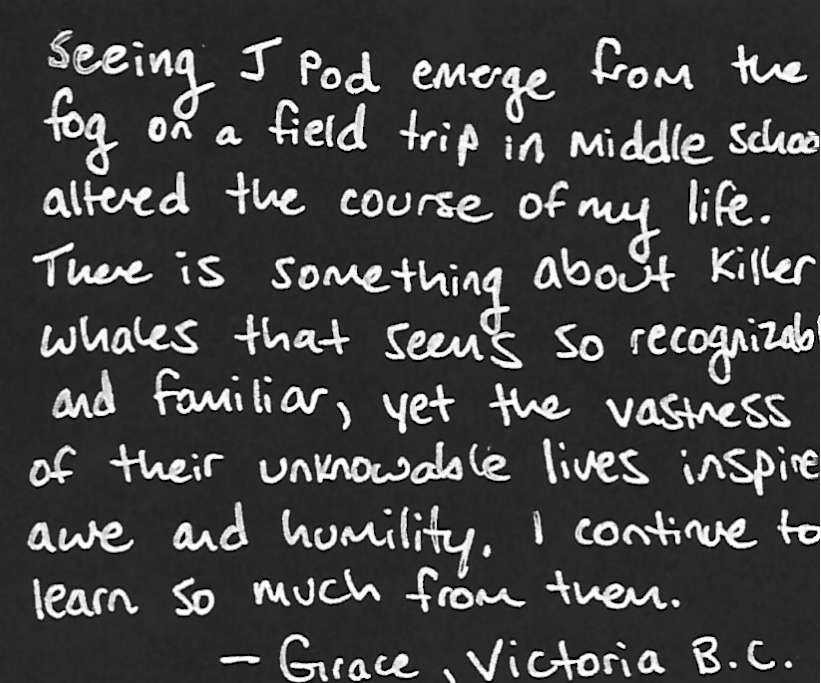 Seeing J Pod emerge from the
fog on a field trip in middle schoo
altered the course of my life.
There is something about killer
whales that seems so recognizabl
and familiar, yet the vastness
of their unknowable lives inspire
awe and humility. I continue to
learn so much from them.
— Grace, Victoria B.C.